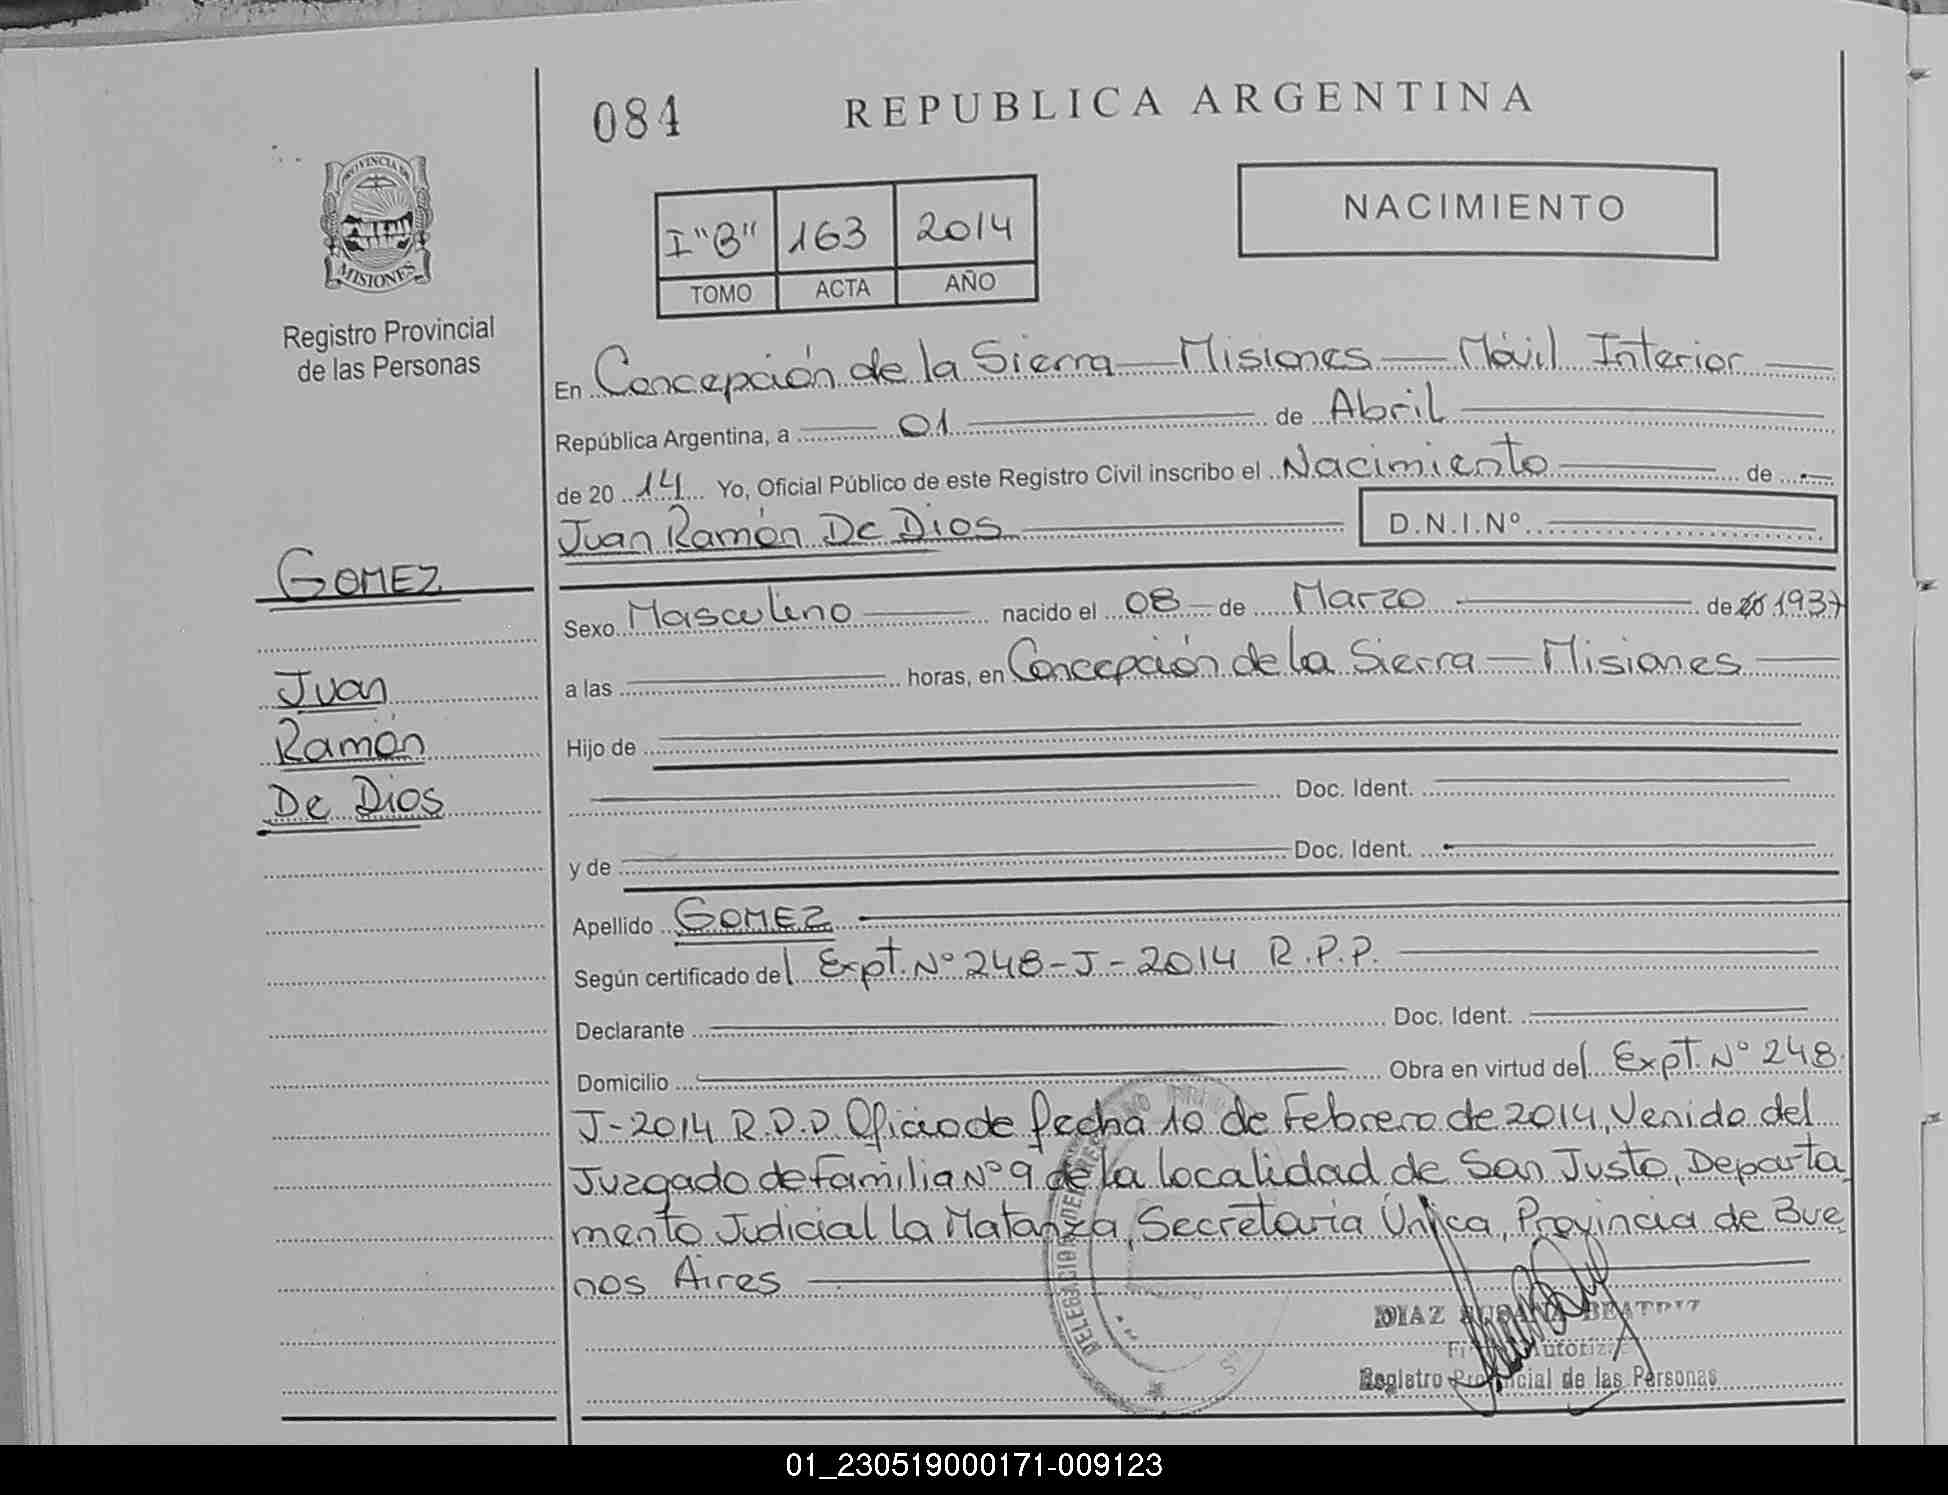 084
REPUBLICA ARGENTINA
PROVINCIA DE
MISIONES
Registro Provincial
de las Personas
I "B" 163 2014
TOMO ACTA AÑO
NACIMIENTO
En Concepción de la Sierra — Misiones — Móvil Interior
República Argentina, a 01 de Abril
de 20 14 Yo, Oficial Público de este Registro Civil inscribo el Nacimiento de
Juan Ramón De Dios D.N.I.Nº
GOMEZ
Juan
Ramón
De Dios
Sexo Masculino nacido el 08 de Marzo de 1937
a las horas, en Concepción de la Sierra — Misiones
Hijo de
Doc. Ident.
y de Doc. Ident.
Apellido GOMEZ
Según certificado del Expt. Nº 248-J-2014 R.P.P.
Declarante Doc. Ident.
Domicilio Obra en virtud del Expt. Nº 248
J-2014 R.P.P. Oficio de fecha 10 de Febrero de 2014, Venido del
Juzgado de Familia Nº 9 de la localidad de San Justo, Departa
mento Judicial la Matanza, Secretaría Única, Provincia de Bue
nos Aires
DIAZ SUSANA BEATRIZ
Registro Provincial de las Personas
01_230519000171-009123